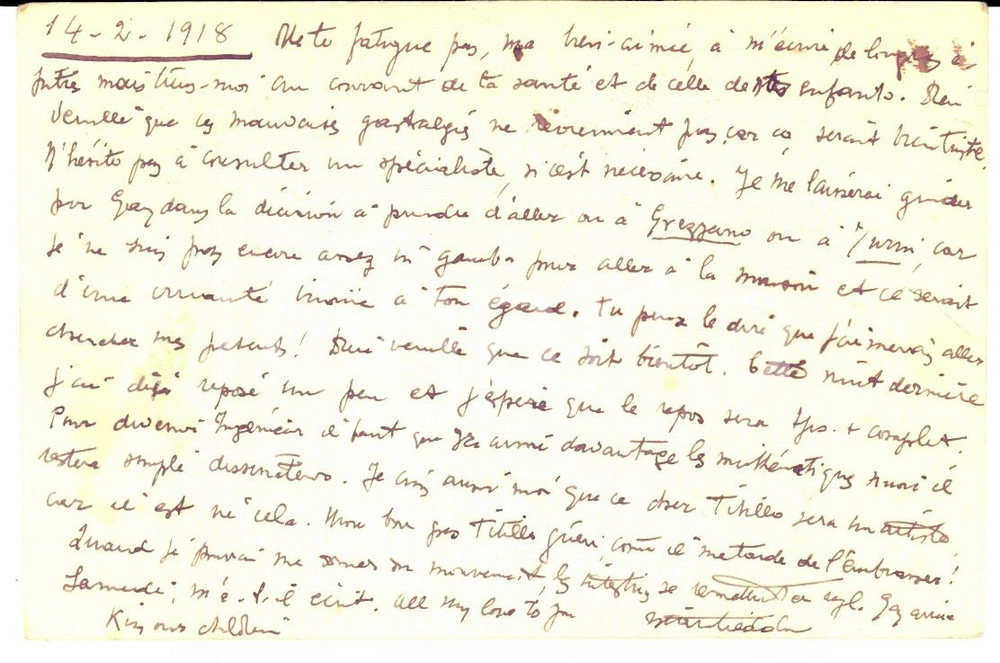 14-2-1918 Ne te fatigue pas, ma bien-aimée à m'écrire de longues
mais tiens-moi au courant de ta santé et de celle de tes enfants. Dieu
veuille que ces mauvaises gastralgies ne reviennent pas, car ça serait bien triste.
N'hésite pas à consulter un spécialiste, si c'est nécessaire. Je me laisserai guider
par Gay dans la décision à prendre d'aller ou à Grezzano ou à Turin, car
je ne suis pas encore assez in gamba pour aller à la maison et ce serait
d'une cruauté inouïe à ton égard. Tu peux le dire que j'aimerais aller
chercher mes petiots! Dieu veuille que ce soit bientôt. Cette nuit dernière
j'ai déjà reposé un peu et j'espère que le repos sera + complet.
Pour devenir Ingénieur il faut que aime davantage les mathématiques sinon il
restera simple dissenatero. Je crois aussi moi que ce cher Titillo sera un artiste
car il est né cela. Mon bon gros Titillo guéri comme il me tarde de l'embrasser!
Quand je pourrai me donner du mouvement, les intestins se remettront en règle. Gay arrive
Samedi, m'a-t-il écrit. All my love to you
Kiss our children